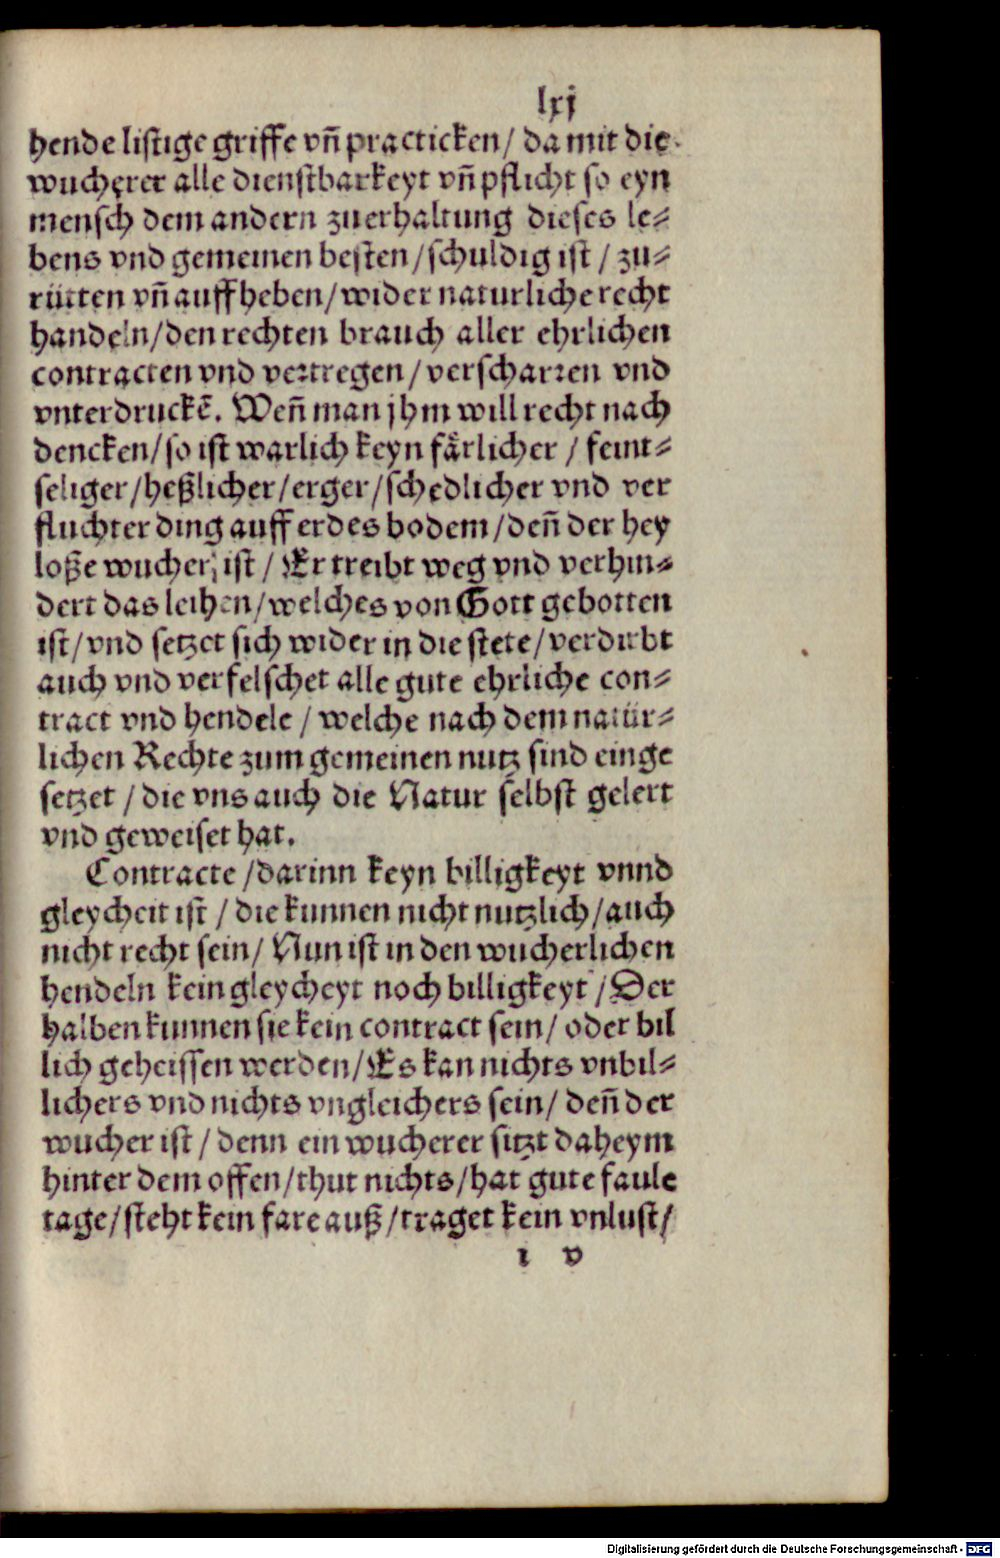 lxj
hende listige griffe vñ practicken/ da mit die
wucherer alle dienstbarkeyt vñ pflicht so eyn
mensch dem andern zuerhaltung dieses le⸗
bens vnd gemeinen besten/schuldig ist / zu⸗
rütten vñ auffheben/wider naturliche recht
handeln/den rechten brauch aller ehrlichen
contracten vnd vertregen/verscharren vnd
vnterdruckē. Weñ man jhm will recht nach
dencken/so ist warlich keyn fårlicher / feint⸗
seliger/heßlicher/erger/schedlicher vnd ver
fluchter ding auff erdes bodem/deñ der hey
loße wucher ist / Er treibt weg vnd verhin⸗
dert das leihen/welches von Gott gebotten
ist/vnd setzet sich wider in die stete/verdirbt
auch vnd verfelschet alle gute ehrliche con⸗
tract vnd hendele / welche nach dem natür⸗
lichen Rechte zum gemeinen nutz sind einge
setzet / die vns auch die Natur selbst gelert
vnd geweiset hat.
Contracte /darinn keyn billigkeyt vnnd
gleycheit ist / die kunnen nicht nutzlich/auch
nicht recht sein/ Nun ist in den wucherlichen
hendeln kein gleycheyt noch billigkeyt /Der
halben kunnen sie kein contract sein/ oder bil
lich geheissen werden/Es kan nichts vnbil⸗
lichers vnd nichts vngleichers sein/ deñ der
wucher ist / denn ein wucherer sitzt daheym
hinter dem offen/thut nichts/hat gute faule
tage/steht kein fare auß/traget kein vnlust/
i v
Digitalisierung gefördert durch die Deutsche Forschungsgemeinschaft - DFG